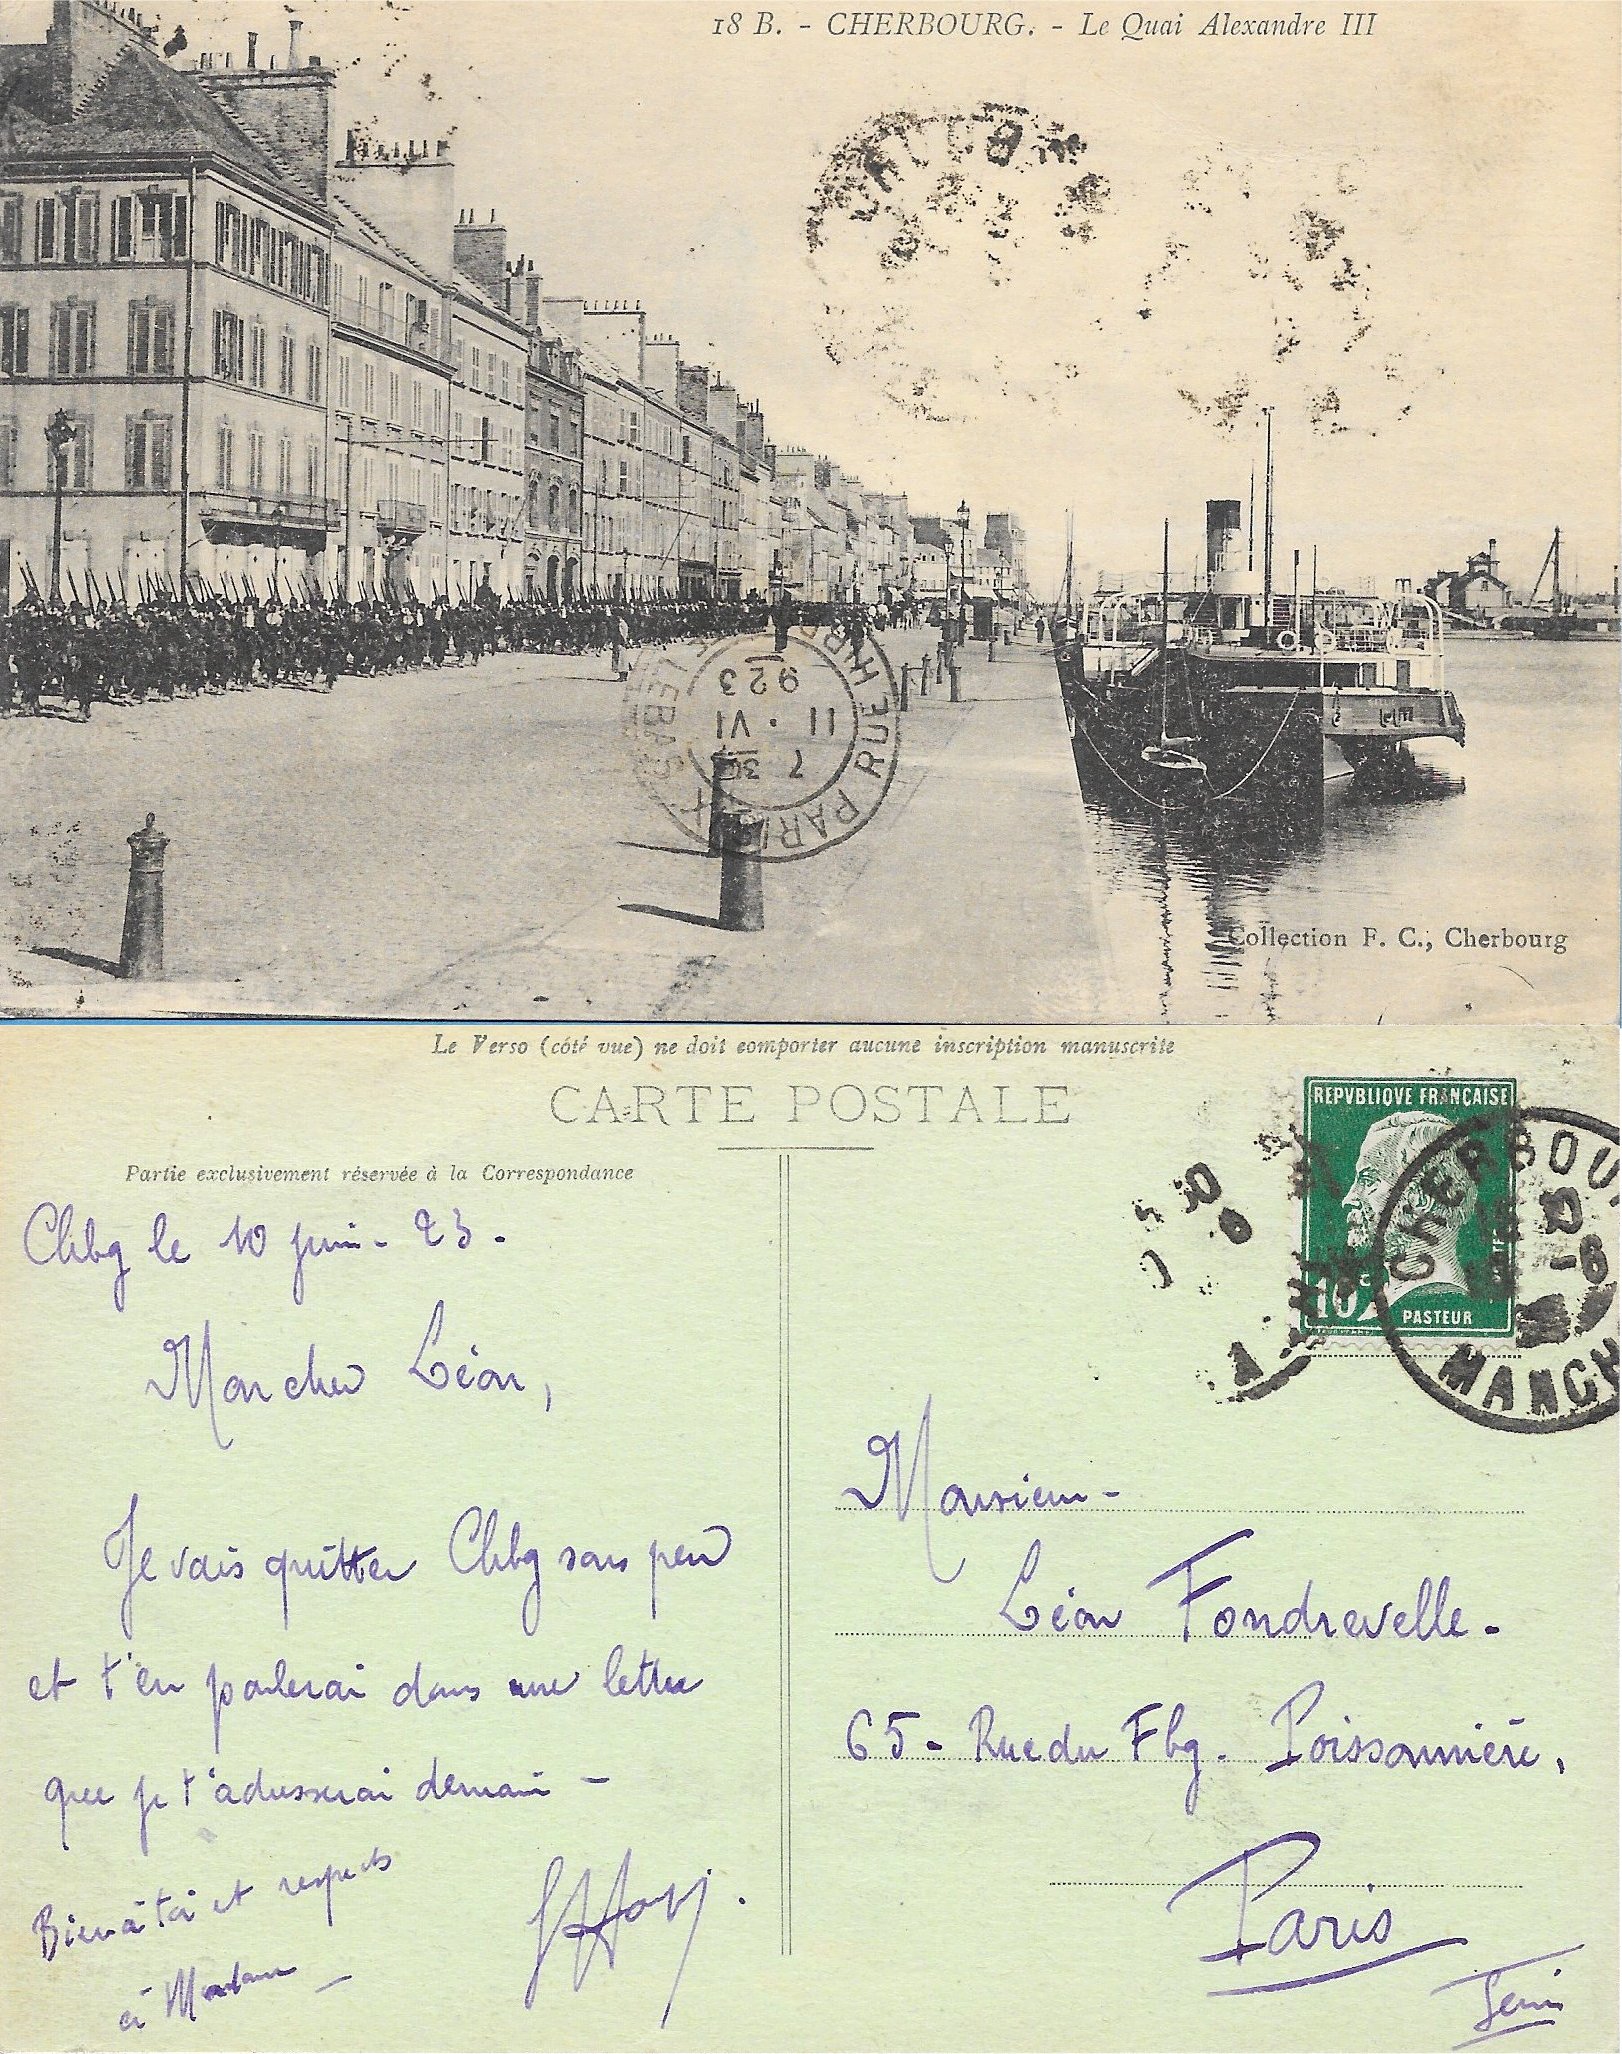 18 B. - CHERBOURG. - Le Quai Alexandre III
PARIS X
RUE HIPP LEBAS
7 30
11 · VI
923
Collection F. C., Cherbourg
Le Verso (côté vue) ne doit comporter aucune inscription manuscrite
CARTE POSTALE
Partie exclusivement réservée à la Correspondance
Chbg le 10 juin - 23 .
Mon cher Léon,
Je vais quitter Chbg sous peu
et t'en parlerai dans une lettre
que je t'adresserai demain -
Bien à toi et respects
à Madame
REPVBLIQVE FRANÇAISE
10c
PASTEUR
CHERBOU
MANCH
Monsieur -
Léon Fondrevelle .
65 - Rue du Fbg. Poissonnière,
Paris